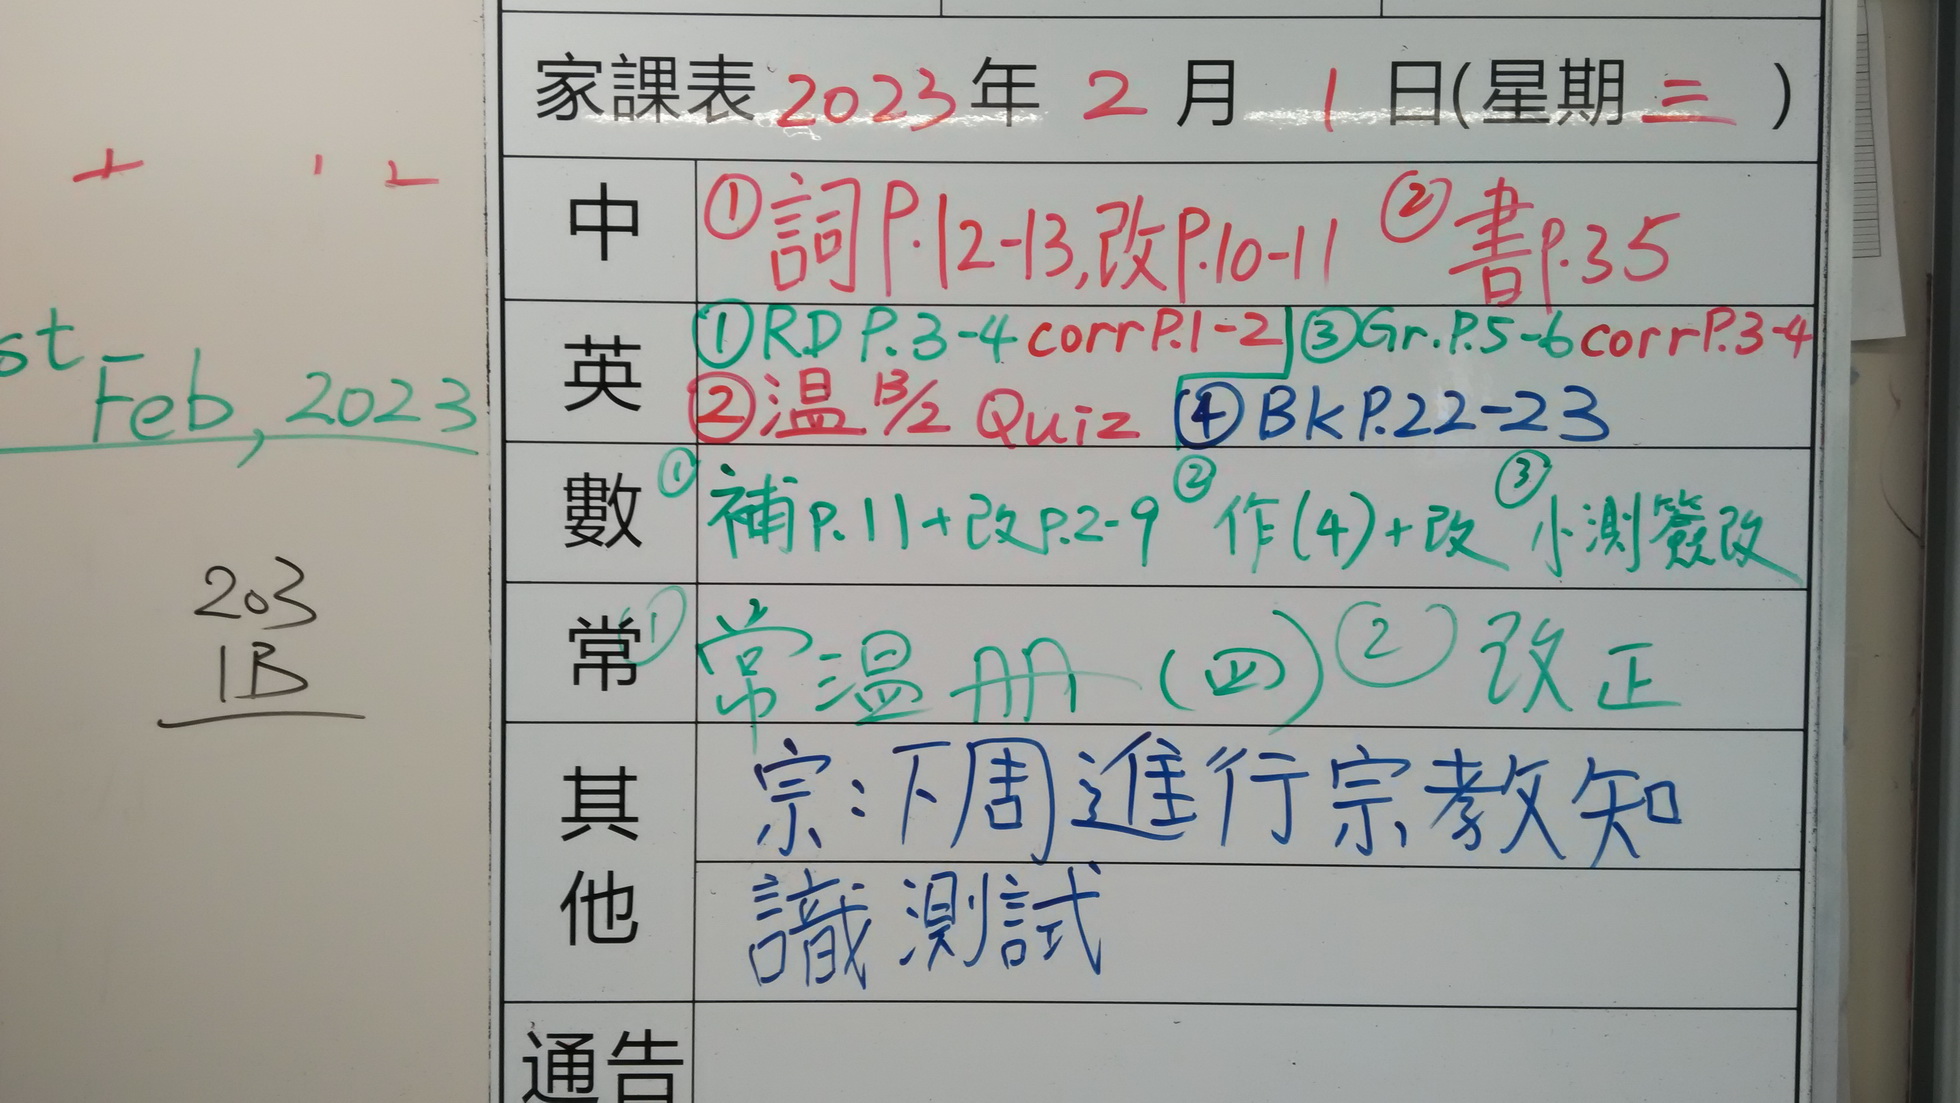 家課表 2023年 2月 1日(星期三)
中 ①詞P.12-13,改P.10-11 ②書P.35
英 ①RD P.3-4 corrP.1-2 ③Gr.P.5-6 corrP.3-4
②温13/2 Quiz ④BKP.22-23
數 ①補P.11+改P.2-9 ②作(4)+改 ③小測簽改
常 ①常温冊(四) ②改正
其他 宗:下周進行宗教知
識測試
通告
st Feb, 2023
203
1B